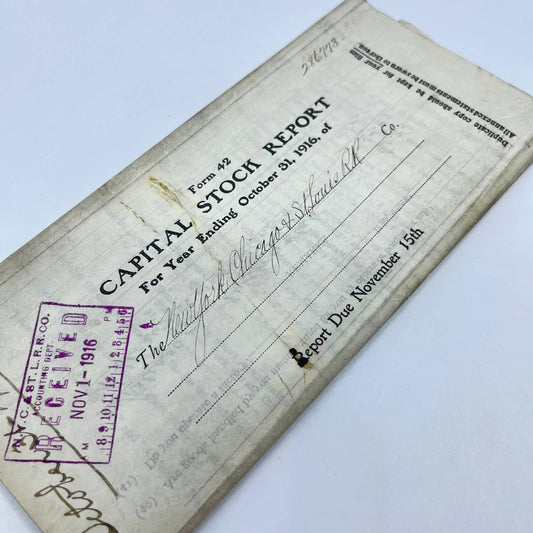 286773
Duplicate copy should be kept for your files
All annexed statements must be sworn to thereon.
Form 42
CAPITAL STOCK REPORT
For Year Ending October 31, 1916, of
The New York, Chicago & St Louis RR Co.
Report Due November 15th
N.Y.C. & ST. L. R. R. CO.
ACCOUNTING DEPT.
RECEIVED
NOV 1 - 1916
AM PM
8 9 10 11 12 1 2 3 4 5 6